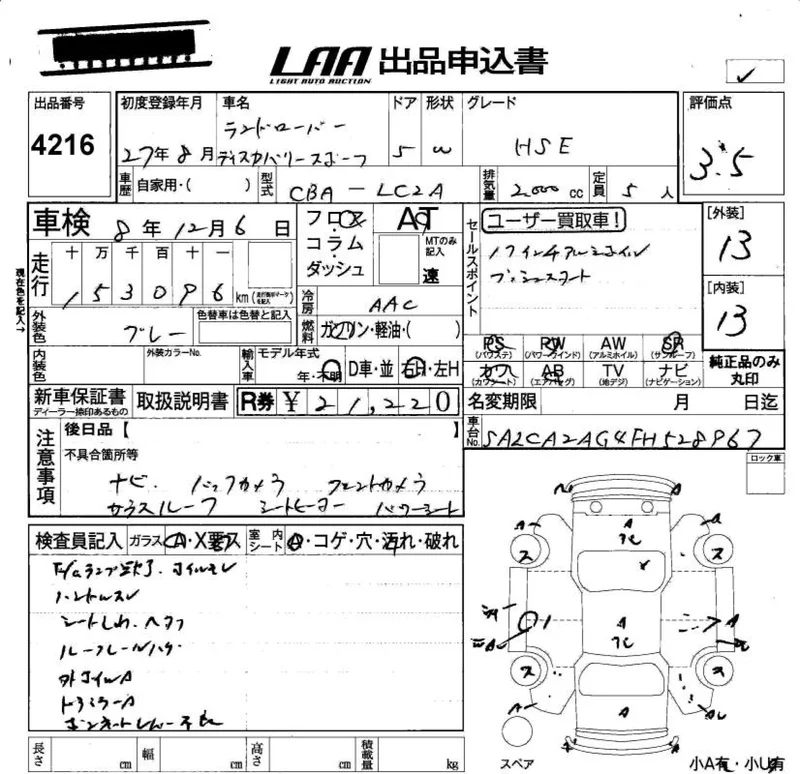 LAA 出品申込書
LIGHT AUTO AUCTION
出品番号
4216
初度登録年月
27年8月
車名
ランドローバー
ディスカバリースポーツ
ドア
5
形状
W
グレード
HSE
評価点
3.5
車歴 自家用・( )
型式 CBA-LC2A
排気量 2.000 cc
定員 5 人
車検 8年12月6日
フロア
コラム
ダッシュ
AT
MTのみ記入
速
セールスポイント
ユーザー買取車!
17インチアルミホイル
プッシュスタート
[外装]
13
[内装]
13
現在色を記入→
走行
十 万 千 百 十 一
153096 km
(走行無マークを記入)
冷房 AAC
燃料 ガソリン・軽油・( )
外装色 グレー
色替車は色替と記入
PS (パワステ)
PW (パワーウインド)
AW (アルミホイル)
SR (サンルーフ)
カワ (カワシート)
AB (エアバッグ)
TV (地デジ)
ナビ (ナビゲーション)
純正品のみ丸印
内装色
外装カラーNo.
輸入車
モデル年式
年・不明
D車・並
右H・左H
新車保証書
ディーラー捺印あるもの
取扱説明書
R券 ¥ 21,220
名変期限 月 日迄
車台No. SALCA2AG4FH528967
ロック車
注意事項
後日品【 】
不具合箇所等
ナビ バックカメラ フロントカメラ
ガラスルーフ シートヒーター パワーシート
検査員記入
ガラス A・X要ス
室内シート
・コゲ・穴・汚れ・破れ
ハンドルスレ
シートしわ、ヘタリ
ルーフレールハゲ
外コイルA
ドアミラーA
A
A
A
A
A
A
A
ス
ス
ス
ス
スペア
小A有・小U有
長さ cm
幅 cm
高さ cm
積載量 kg